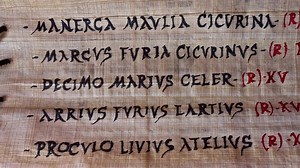 - MANERCA MAVLIA CICVRINA - (R)
- MARCVS FVRIA CICVRINVS - (R) I
- DECIMO MARIVS CELER - (R) · XV
- ARRIVS FVRIVS LARTIVS (R) - XV
- PROCVLO LIVIVS ATELIVS (R) - X